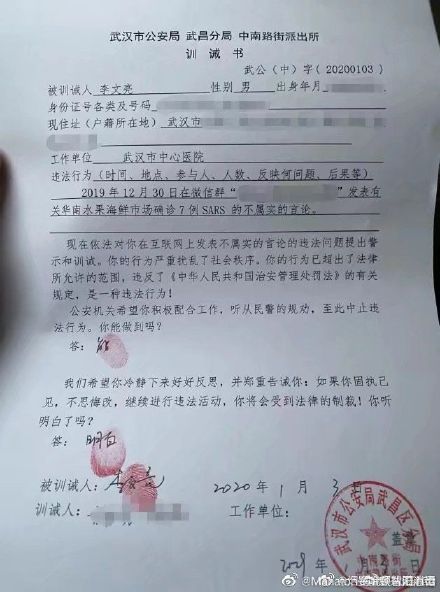 武汉市公安局 武昌分局 中南路街派出所
训 诫 书
武公(中)字(20200103)
被训诫人 李文亮 性别 男 出身年月
身份证号各类及号码
现住址(户籍所在地) 武汉市
工作单位 武汉市中心医院
违法行为(时间、地点、参与人、人数、反映何问题、后果等)
2019年12月30日在微信群“ ”发表有
关华南水果海鲜市场确诊7例SARS的不属实的言论。
现在依法对你在互联网上发表不属实的言论的违法问题提出警
示和训诫。你的行为严重扰乱了社会秩序。你的行为已超出了法律
所允许的范围,违反了《中华人民共和国治安管理处罚法》的有关
规定,是一种违法行为!
公安机关希望你积极配合工作,听从民警的规劝,至此中止违
法行为。你能做到吗?
答:能
我们希望你冷静下来好好反思,并郑重告诫你:如果你固执己
见,不思悔改,继续进行违法活动,你将会受到法律的制裁!你听
明白了吗?
答:明白
被训诫人:李文亮 2020年1月3日
训诫人: 工作单位:
武汉市公安局武昌区分局
中南路街
派出所